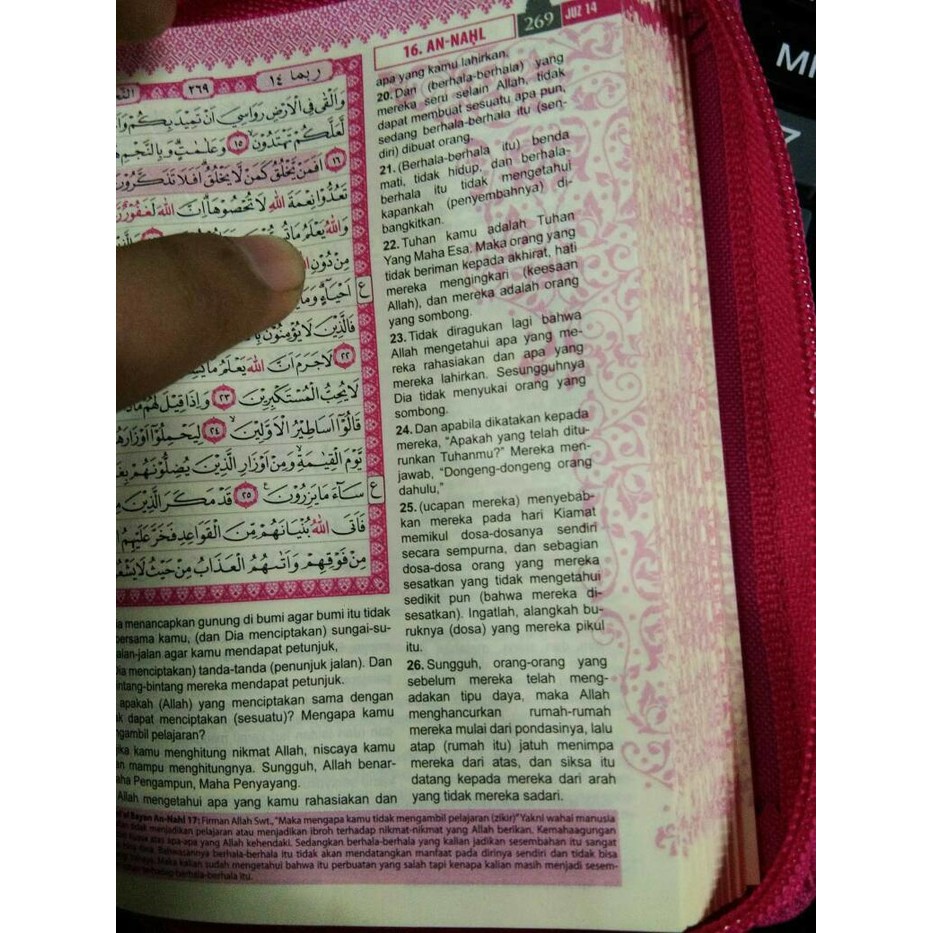 16. AN-NAḤL
269
JUZ 14
ربما ١٤
٢٦٩
وَاَلْقٰى فِى الْاَرْضِ رَوَاسِيَ اَنْ تَمِيْدَ بِكُمْ
لَّعَلَّكُمْ تَهْتَدُوْنَ ۙ ١٥ وَعَلٰمٰتٍ ۗوَبِالنَّجْمِ
١٦ اَفَمَنْ يَّخْلُقُ كَمَنْ لَّا يَخْلُقُ ۗ اَفَلَا تَذَكَّرُوْنَ
تَعُدُّوْا نِعْمَةَ اللّٰهِ لَا تُحْصُوْهَا ۗ اِنَّ اللّٰهَ لَغَفُوْرٌ
وَاللّٰهُ يَعْلَمُ مَا
مِنْ دُوْنِ
اَحْيَاۤءٍ ۗوَمَا
فَالَّذِيْنَ لَا يُؤْمِنُوْنَ
٢٢ لَا جَرَمَ اَنَّ اللّٰهَ يَعْلَمُ مَا
لَا يُحِبُّ الْمُسْتَكْبِرِيْنَ ٢٣ وَاِذَا قِيْلَ لَهُمْ
قَالُوْٓا اَسَاطِيْرُ الْاَوَّلِيْنَ ۙ ٢٤ لِيَحْمِلُوْٓا اَوْزَارَهُمْ
يَّوْمَ الْقِيٰمَةِ ۙ وَمِنْ اَوْزَارِ الَّذِيْنَ يُضِلُّوْنَهُمْ
سَاۤءَ مَا يَزِرُوْنَ ࣖ ٢٥ قَدْ مَكَرَ الَّذِيْنَ
فَاَتَى اللّٰهُ بُنْيَانَهُمْ مِّنَ الْقَوَاعِدِ فَخَرَّ عَلَيْهِمُ
مِنْ فَوْقِهِمْ وَاَتٰىهُمُ الْعَذَابُ مِنْ حَيْثُ لَا
menancapkan gunung di bumi agar bumi itu tidak
bersama kamu, (dan Dia menciptakan) sungai-su-
jalan-jalan agar kamu mendapat petunjuk,
menciptakan) tanda-tanda (penunjuk jalan). Dan
bintang-bintang mereka mendapat petunjuk.
apakah (Allah) yang menciptakan sama dengan
dapat menciptakan (sesuatu)? Mengapa kamu
mengambil pelajaran?
jika kamu menghitung nikmat Allah, niscaya kamu
mampu menghitungnya. Sungguh, Allah benar-
Maha Pengampun, Maha Penyayang.
Allah mengetahui apa yang kamu rahasiakan dan
apa yang kamu lahirkan.
20. Dan (berhala-berhala) yang
mereka seru selain Allah, tidak
dapat membuat sesuatu apa pun,
sedang berhala-berhala itu (sen-
diri) dibuat orang.
21. (Berhala-berhala itu) benda
mati, tidak hidup, dan berhala-
berhala itu tidak mengetahui
kapankah (penyembahnya) di-
bangkitkan.
22. Tuhan kamu adalah Tuhan
Yang Maha Esa. Maka orang yang
tidak beriman kepada akhirat, hati
mereka mengingkari (keesaan
Allah), dan mereka adalah orang
yang sombong.
23. Tidak diragukan lagi bahwa
Allah mengetahui apa yang me-
reka rahasiakan dan apa yang
mereka lahirkan. Sesungguhnya
Dia tidak menyukai orang yang
sombong.
24. Dan apabila dikatakan kepada
mereka, "Apakah yang telah ditu-
runkan Tuhanmu?" Mereka men-
jawab, "Dongeng-dongeng orang
dahulu,"
25. (ucapan mereka) menyebab-
kan mereka pada hari Kiamat
memikul dosa-dosanya sendiri
secara sempurna, dan sebagian
dosa-dosa orang yang mereka
sesatkan yang tidak mengetahui
sedikit pun (bahwa mereka di-
sesatkan). Ingatlah, alangkah bu-
ruknya (dosa) yang mereka pikul
itu.
26. Sungguh, orang-orang yang
sebelum mereka telah meng-
adakan tipu daya, maka Allah
menghancurkan rumah-rumah
mereka mulai dari pondasinya, lalu
atap (rumah itu) jatuh menimpa
mereka dari atas, dan siksa itu
datang kepada mereka dari arah
yang tidak mereka sadari.
Bayan An-Nahl 17: Firman Allah Swt., "Maka mengapa kamu tidak mengambil pelajaran (zikir)" Yakni wahai manusia
tidak menjadikan pelajaran atau menjadikan ibroh terhadap nikmat-nikmat yang Allah berikan. Kemahaagungan
atas apa-apa yang Allah kehendaki. Sedangkan berhala-berhala yang kalian jadikan sesembahan itu sangat
Bahwasannya berhala-berhala itu tidak akan mendatangkan manfaat pada dirinya sendiri dan tidak bisa
Maka kalian sudah mengetahui bahwa itu perbuatan yang salah tapi kenapa kalian masih menjadi sesem-
berhala-berhala itu.